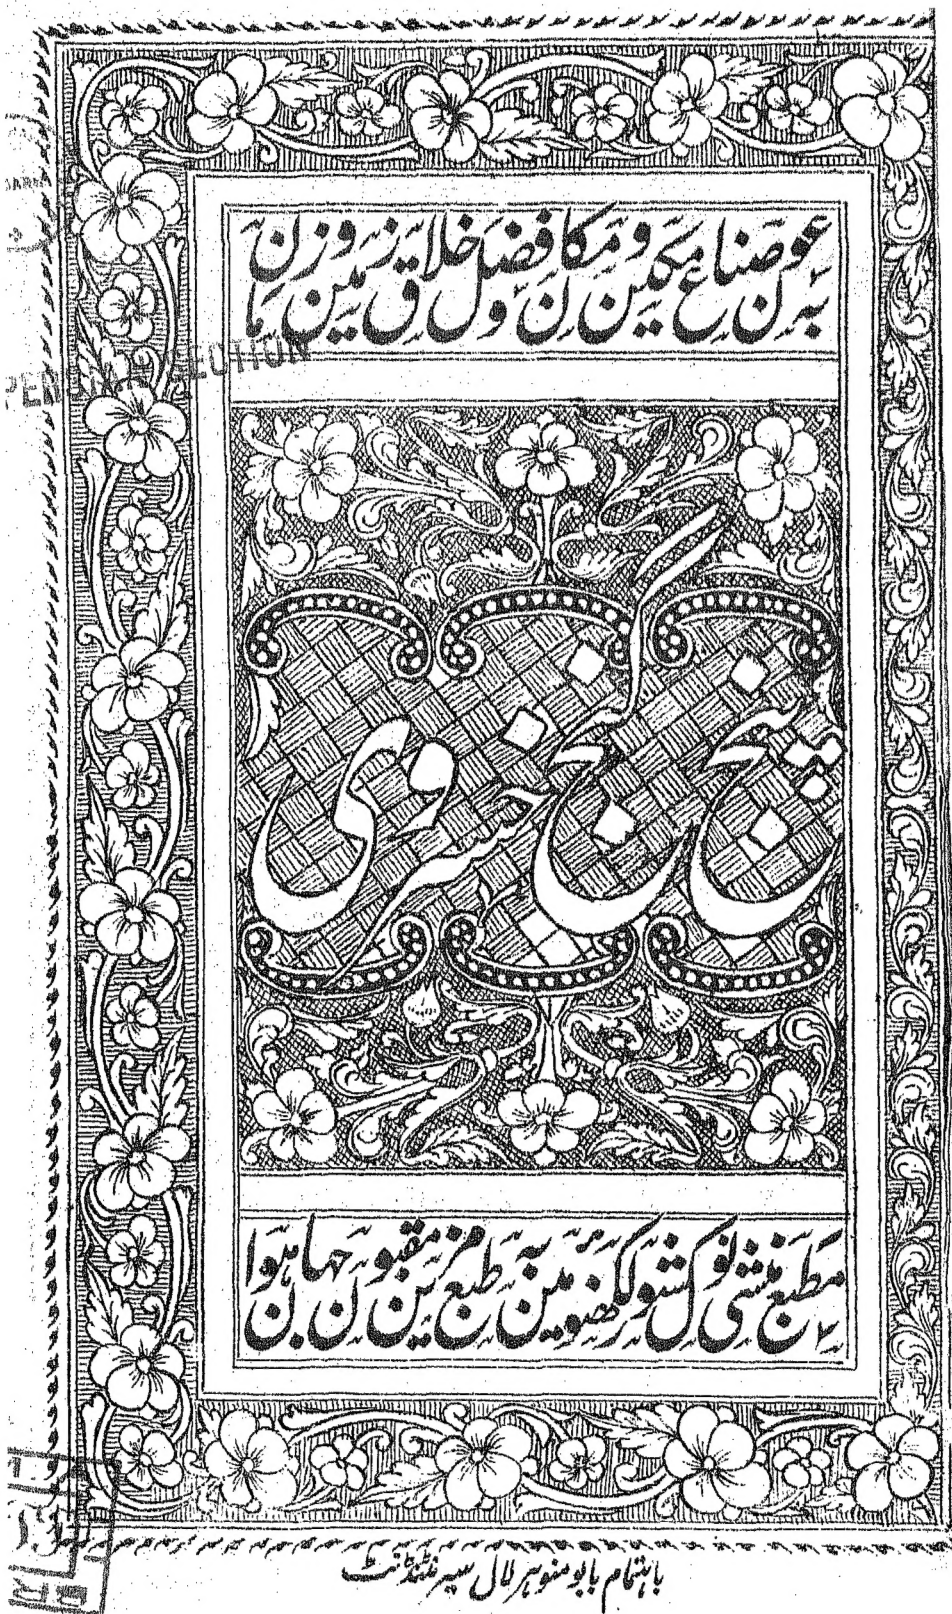 بعون صناع مکین و مکان و فضل خلاق زمین و زمان
PERSIAN SECTION
پنج گنج خسروی
مطبع منشی نولکشور لکھنؤ مین بہ طبع مزین مقبول جہان ہوا
باہتمام بابو منوہر لال سپرنٹنڈنٹ